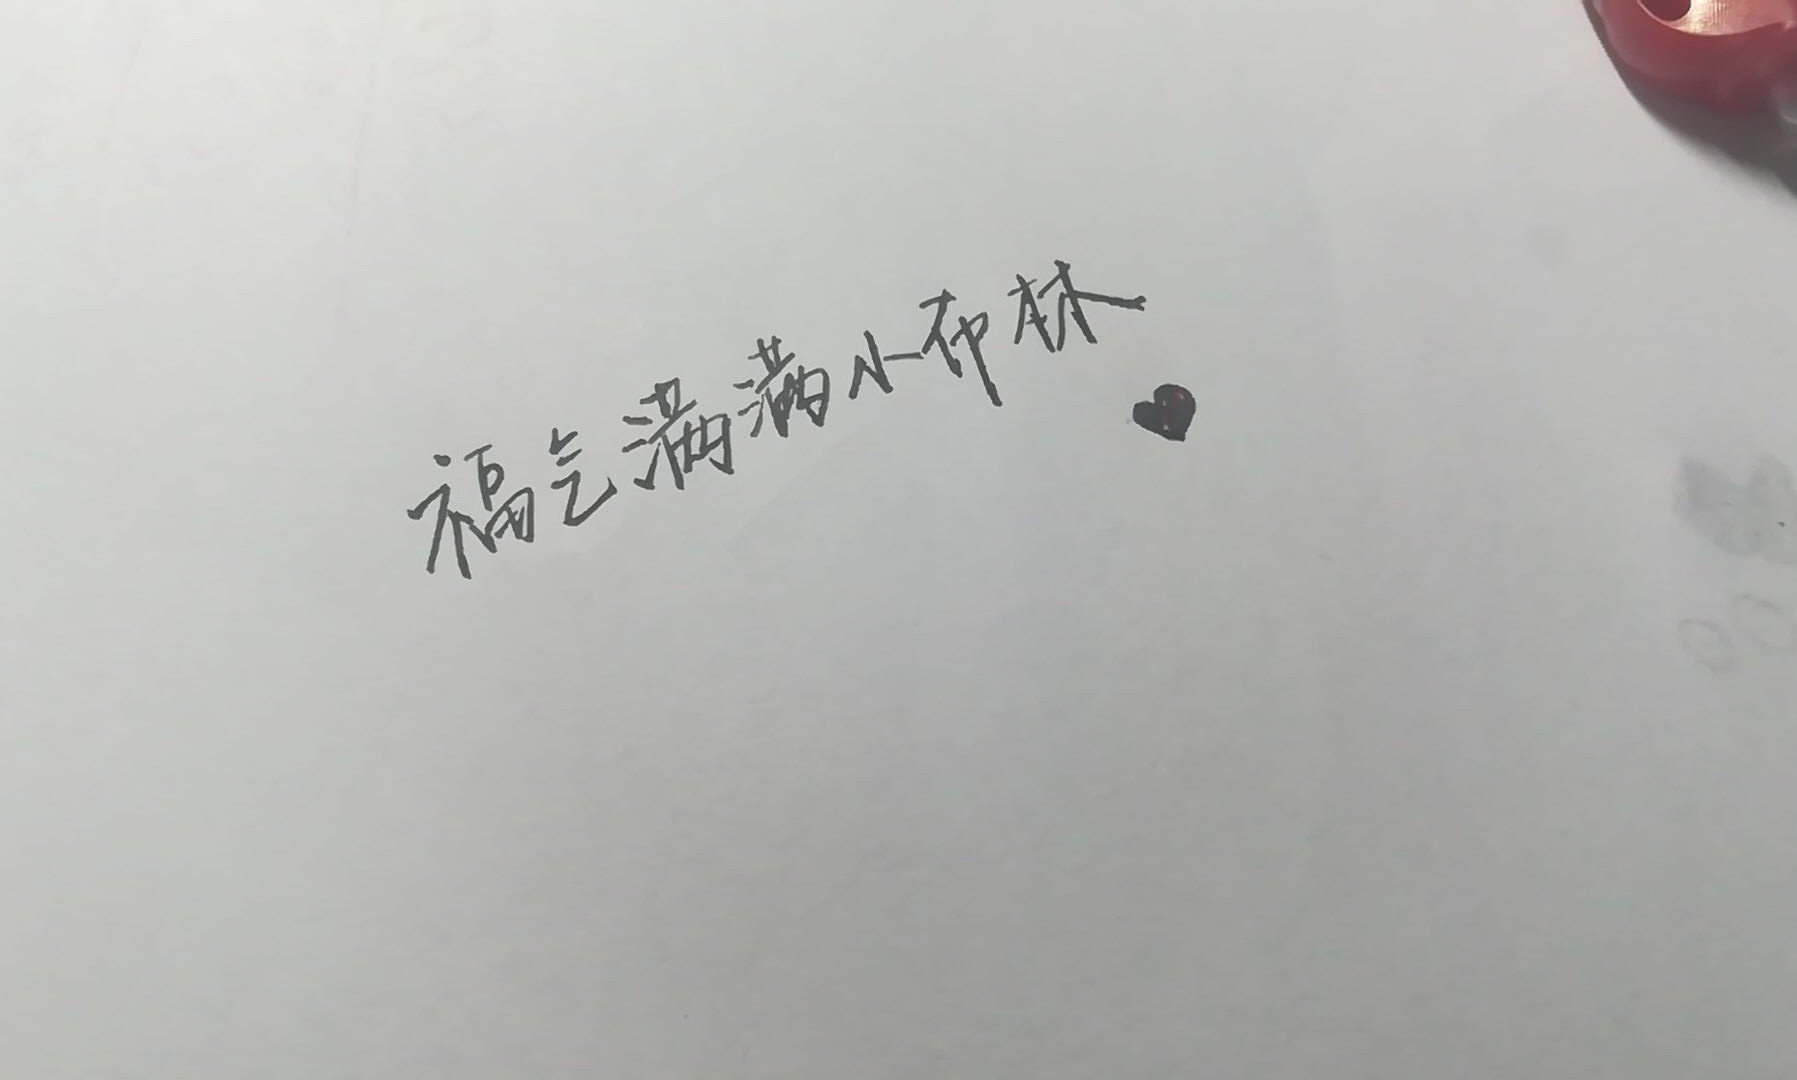 福气满满小布林